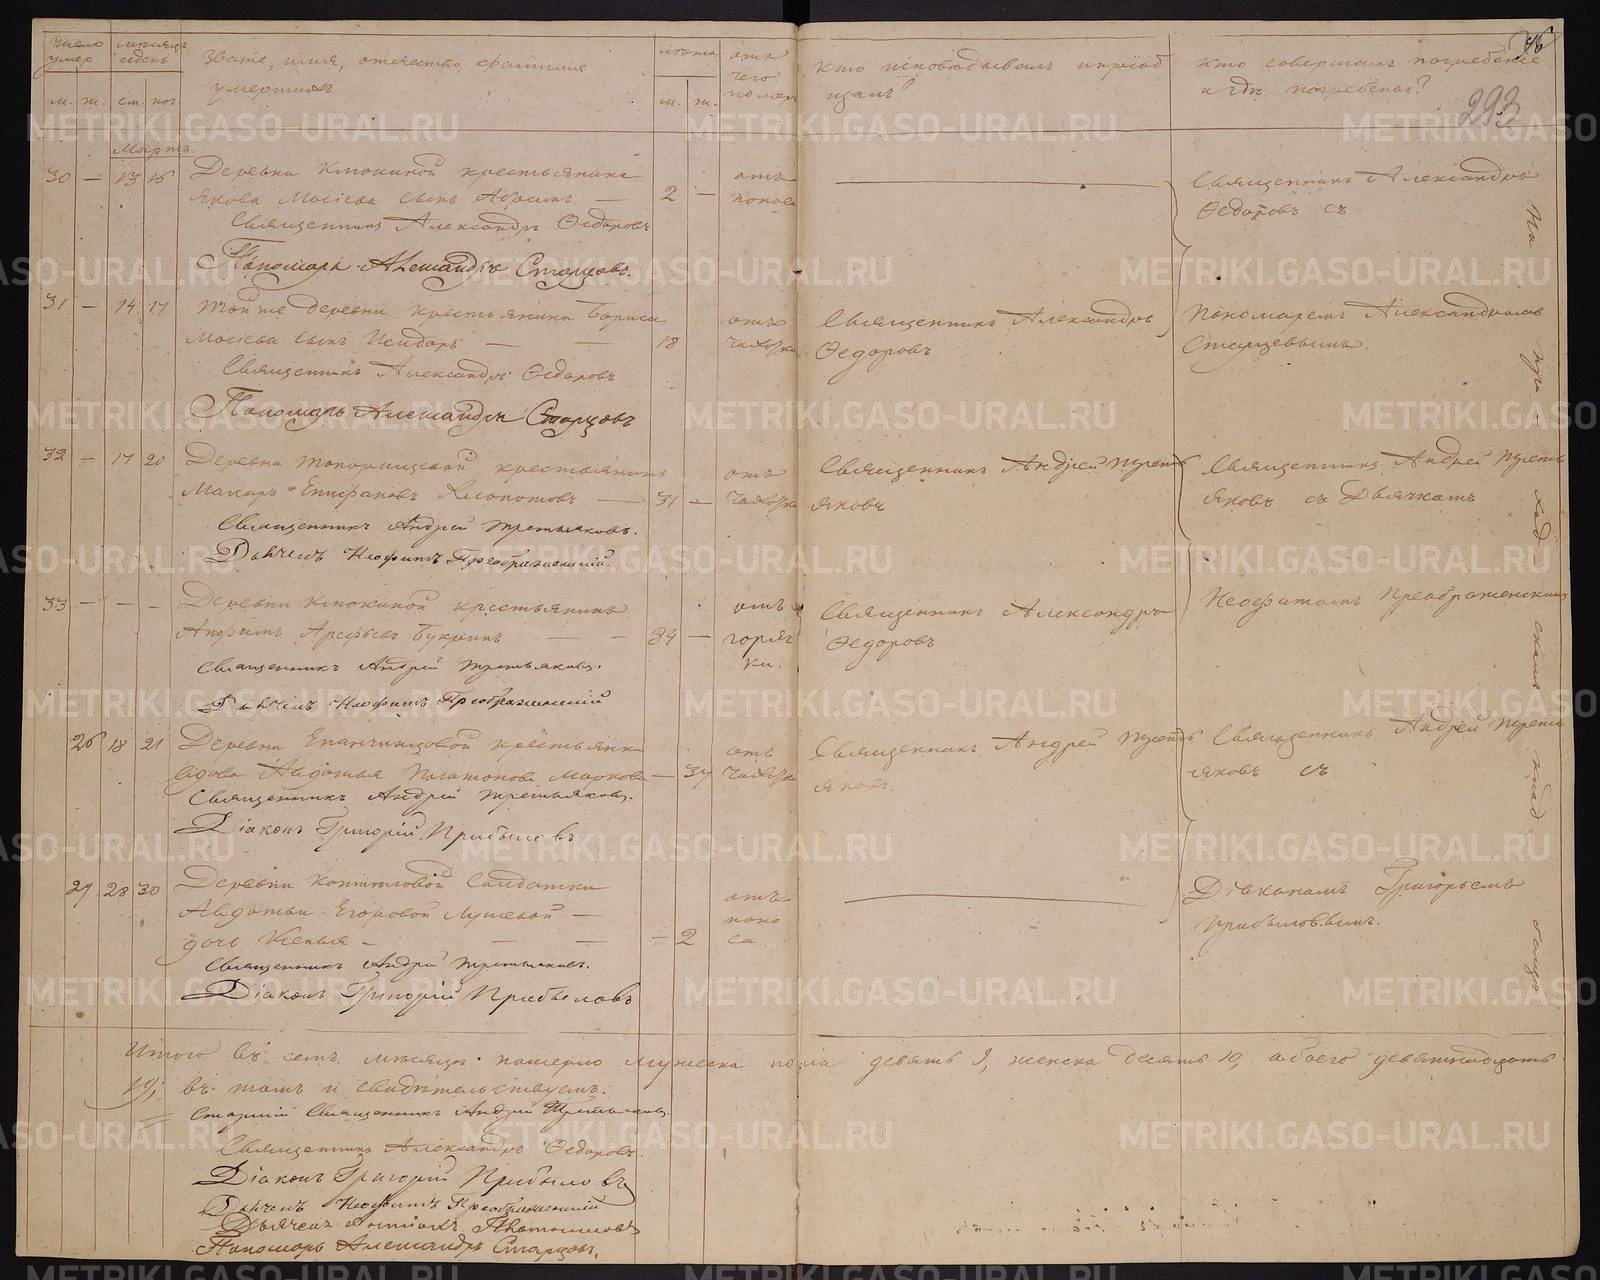 число умер.
мѣсяцъ и день
Званіе, имя, отечество фамилія
умершихъ
лѣта
отъ чего померъ
кто исповѣдывалъ и пріобщалъ?
кто совершалъ погребеніе
и гдѣ погребены?
293
м. ж. см. пог. м. ж.
Мартъ.
30 — 13 16 Деревни Клюкиной крестьянина
Якова Мосіева сынъ — 2 — отъ поноса
Священникъ Александръ Ѳедоровъ
Священникъ Александръ
Ѳедоровъ съ
Пономарь Александръ Старцовъ.
31 — 14 17 Той же деревни крестьянина Бориса
Мосіева сынъ Исидоръ — — 18 отъ чахотки
Священникъ Александръ
Ѳедоровъ
Пономаремъ Александромъ
Старцевымъ.
Священникъ Александръ Ѳедоровъ
Пономарь Александръ Старцовъ
32 — 17 20 Деревни крестьянинъ
Макаръ Епифановъ — 31 — отъ чахотки
Священникъ Андрей Треть
яковъ
Священникъ Андрей Треть
яковъ съ Дьячкомъ
Священникъ Андрей Третьяковъ.
Дьячекъ Неофитъ Преображенскій.
33 — — — Деревни Клюкиной крестьянинъ
Арефьевъ — — 34 — отъ горяч
ки.
Священникъ Александръ
Ѳедоровъ
Неофитомъ Преображенскимъ
Священникъ Андрей Третьяковъ.
Дьячекъ Неофитъ Преображенскій
26 18 21 Деревни Епанчинцовой крестьянка
вдова Авдотья Платонова — 37 отъ чахотки
Священникъ Андрей Треть
яковъ.
Священникъ Андрей Треть
яковъ съ
Священникъ Андрей Третьяковъ.
Діаконъ Григорій Прибыловъ
27 28 30 Деревни солдатки
Авдотьи Егоровой —
дочь Ксенья — — — — 2 отъ
поно
са.
Діакономъ Григорьемъ
Прибыловымъ.
Священникъ Андрей Третьяковъ.
Діаконъ Григорій Прибыловъ
На приходскомъ кладбищѣ
Итого въ семъ мѣсяцѣ померло мужеска пола девять 9, женска десять 10, обоего девятнадцать
19; въ томъ и свидѣтельствуемъ:
Старшій Священникъ Андрей Третьяковъ.
Священникъ Александръ Ѳедоровъ.
Діаконъ Григорій Прибыловъ
Дьячекъ Неофитъ Преображенскій
Дьячекъ
Пономарь Александръ Старцовъ.
METRIKI.GASO-URAL.RU